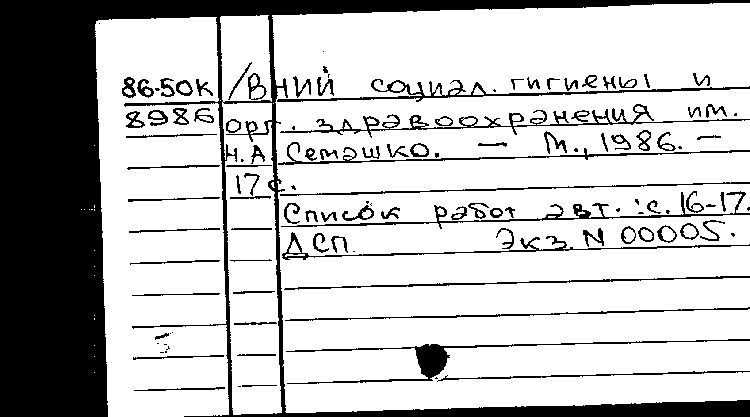 86-50К /ВНИИ социал. гигиены и
8986 орг. здравоохранения им.
Н.А. Семашко. — М., 1986. —
17 с.
Список работ авт.: с. 16-17.
ДСП Экз. N 00005.